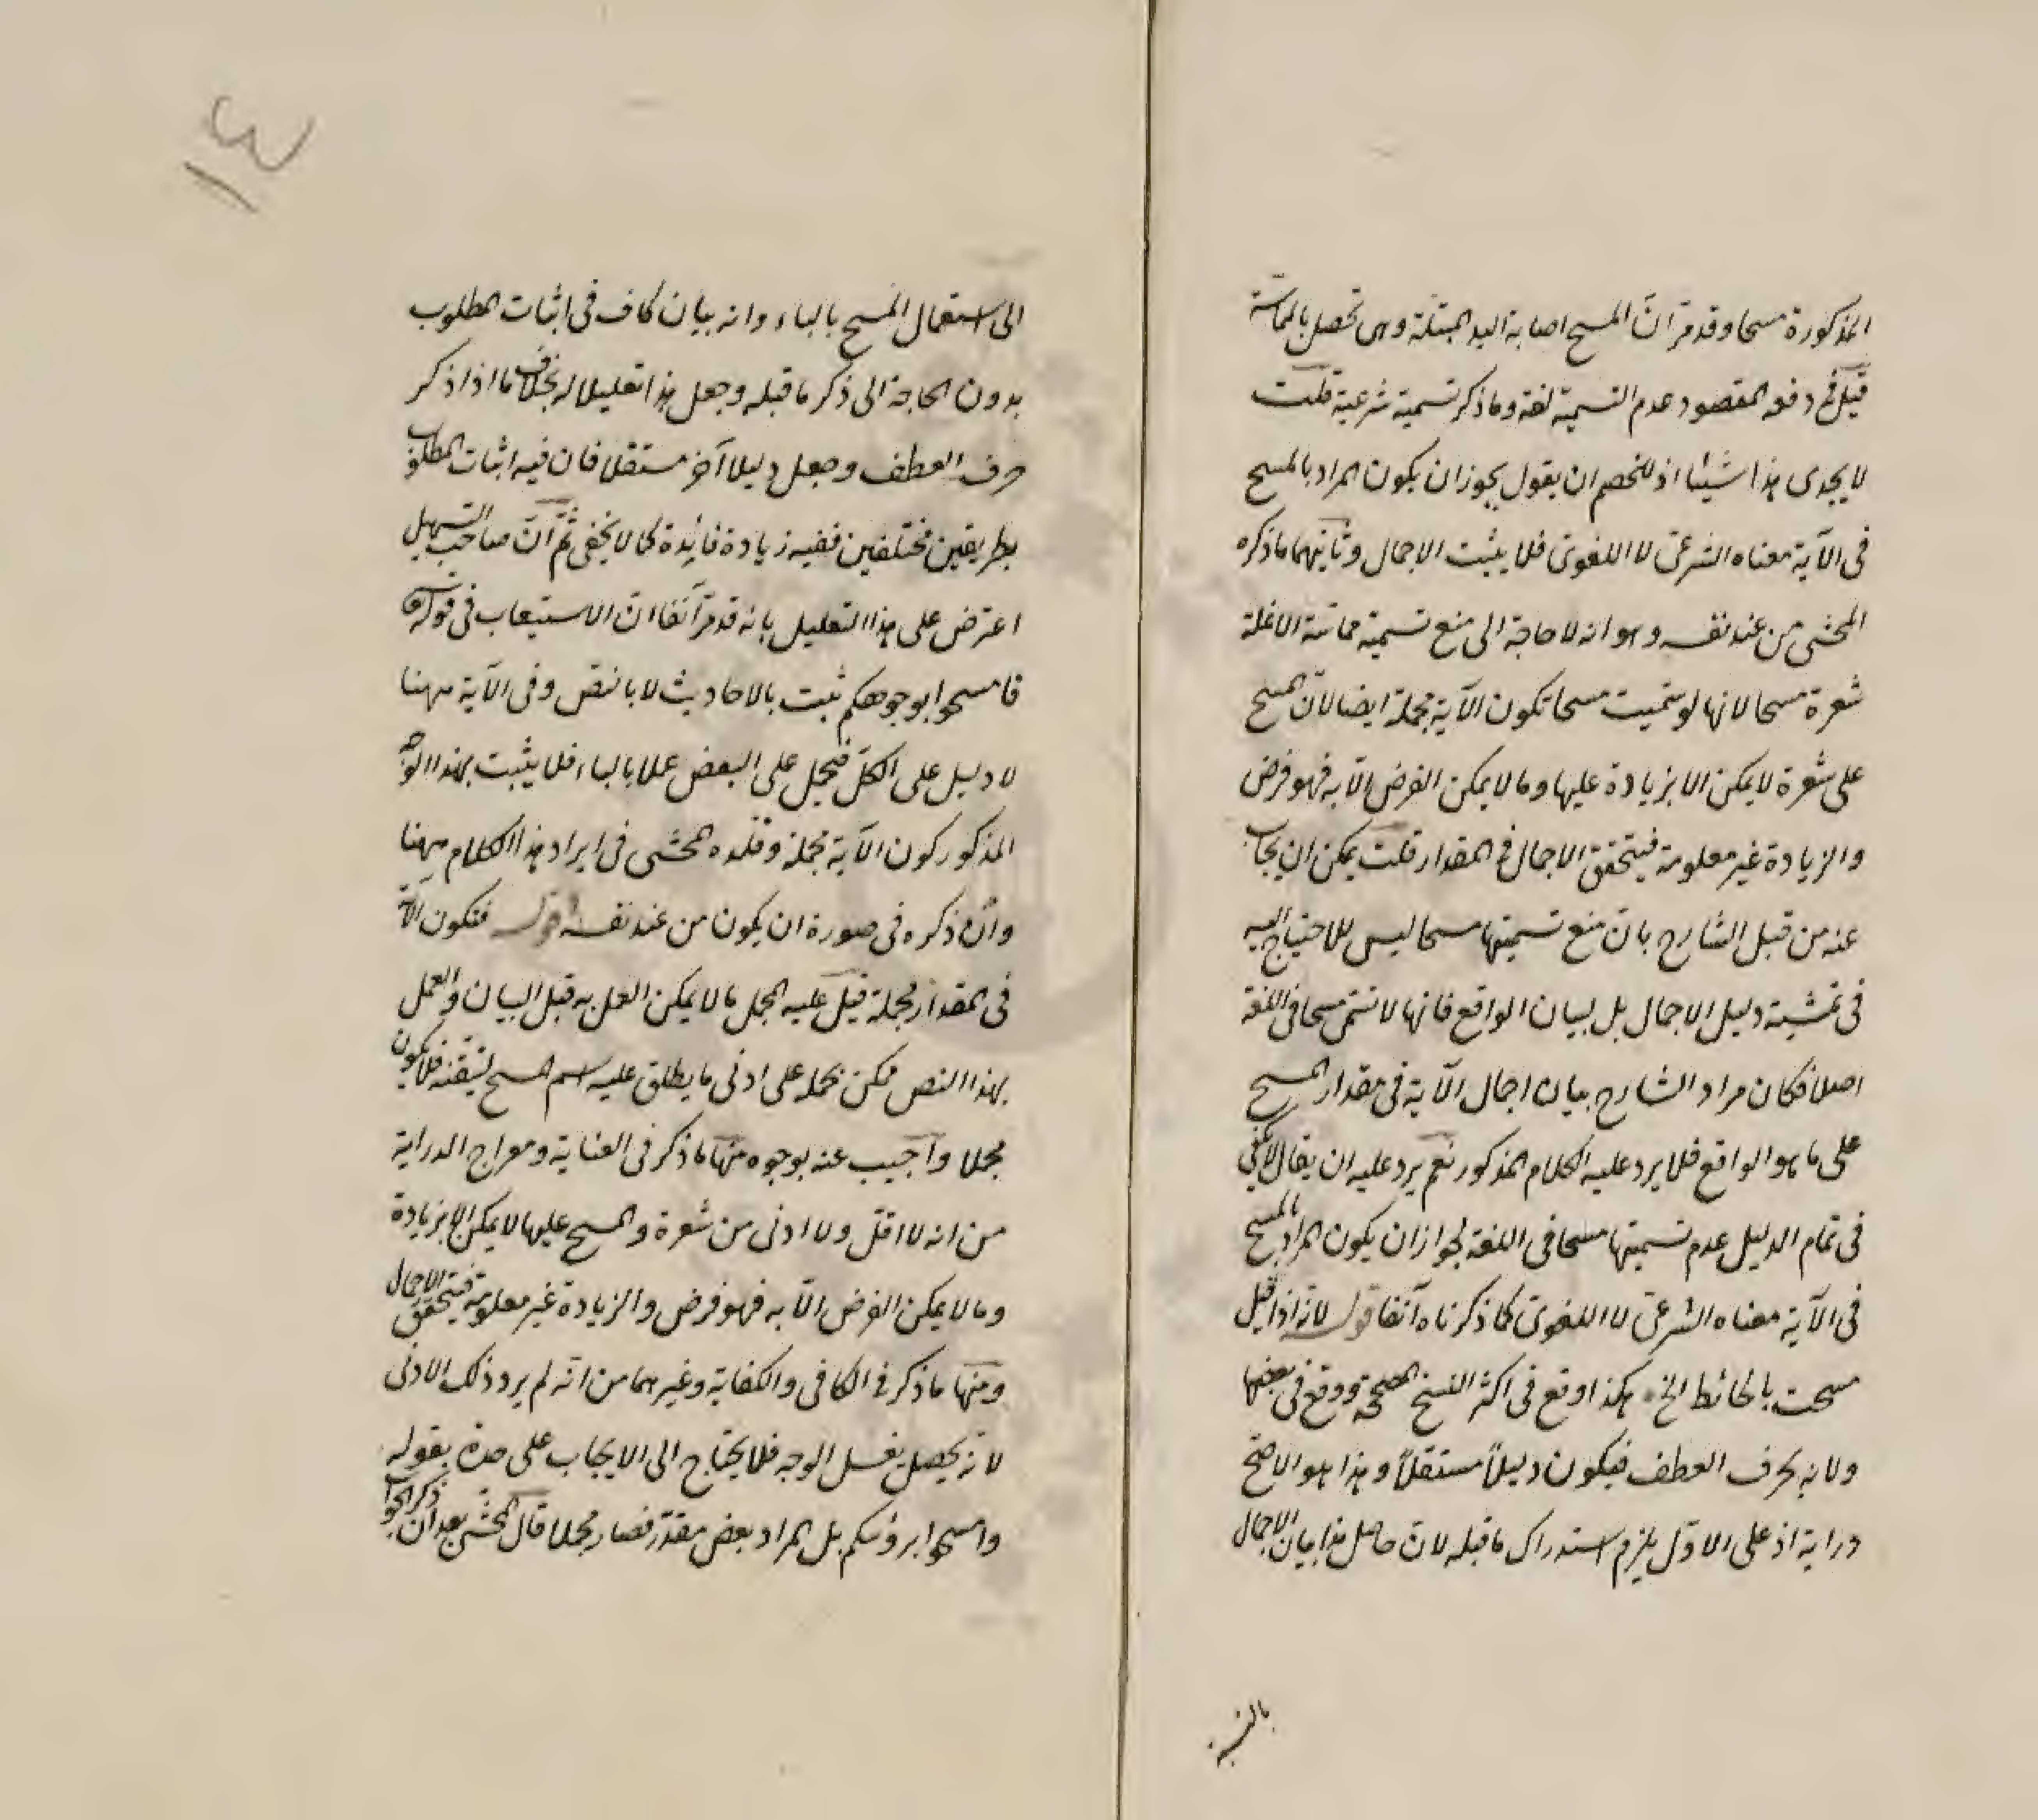 المذكورة مسحا وقد مر ان المسح اصابة اليد المبتلة وهى تحصل بالمماسة
قيل فى دفعه المقصود عدم التسمية لغة وما ذكر تسمية شرعية قلت
لا يجدى هذا شيئا اذ للخصم ان يقول يجوز ان يكون المراد بالمسح
فى الآية معناه الشرعى لا اللغوى فلا يثبت الاجمال وثانيهما ما ذكره
المحشى من عند نفسه وهو انه لا حاجة الى منع تسمية مماسة الانملة
شعرة مسحا لانها لو سميت مسحا تكون الآية مجملة ايضا لان المسح
على شعرة لا يمكن الا بزيادة عليها وما لا يمكن الفرض الا به فهو فرض
والزيادة غير معلومة فيتحقق الاجمال فى المقدار قلت يمكن ان يجاب
عنه من قبل الشارح بان منع تسميتها مسحا ليس للاحتياج اليه
فى تمشية دليل الاجمال بل لبيان الواقع فانها لا تسمى مسحا فى اللغة
اصلا فكان مراد الشارح بيان اجمال الآية فى مقدار المسح
على ما هو الواقع فلا يرد عليه الكلام المذكور نعم يرد عليه ان يقال لا يكفى
فى تمام الدليل عدم تسميتها مسحا فى اللغة لجواز ان يكون المراد بالمسح
فى الآية معناه الشرعى لا اللغوى كما ذكرناه آنفا قوله لانه اذا قيل
مسحت بالحائط الخ هكذا وقع فى اكثر النسخ المصححة ووقع فى بعضها
ولانه بحرف العطف فيكون دليلاً مستقلاً وهذا هو الاصح
دراية اذ على الاول يلزم استدراك ما قبله لان حاصل هذا بيان الاجمال
بالنسبة
١٣
الى استعمال المسح بالباء وانه بيان كاف فى اثبات المطلوب
بدون الحاجة الى ذكر ما قبله وجعل هذا تعليلا له بخلاف ما اذا ذكر
حرف العطف وجعل دليلا آخر مستقلا فان فيه اثبات المطلوب
بطريقين مختلفين ففيه زيادة فائدة كما لا يخفى ثم ان صاحب التسهيل
اعترض على هذا التعليل بانه قد مر آنفا ان الاستيعاب فى قوله
فامسحوا بوجوهكم ثبت بالاحاديث لا بالنص وفى الآية ههنا
لا دليل على الكل فيحمل على البعض عملا بالباء فلا يثبت بهذا الوجه
المذكور كون الآية مجملة وقلده المحشى فى ايراد هذا الكلام ههنا
وان ذكره فى صورة ان يكون من عند نفسه قوله فتكون الآية
فى المقدار مجملة قيل عليه المجمل ما لا يمكن العمل به قبل البيان والعمل
بهذا النص ممكن بحمله على ادنى ما يطلق عليه اسم المسح لتيقنه فلا يكون
مجملا واجيب عنه بوجوه منها ما ذكر فى العناية ومعراج الدراية
من انه لا اقل ولا ادنى من شعرة والمسح عليها لا يمكن الا بزيادة
وما لا يمكن الفرض الا به فهو فرض والزيادة غير معلومة فيتحقق الاجمال
ومنها ما ذكر فى الكافى والكفاية وغيرهما من انه لم يرد ذلك الادنى
لانه يحصل بغسل الوجه فلا يحتاج الى الايجاب على حدة بقوله
وامسحوا برؤسكم بل المراد بعض مقدر فصار مجملا قال المحشى بعد ان ذكر الجواب